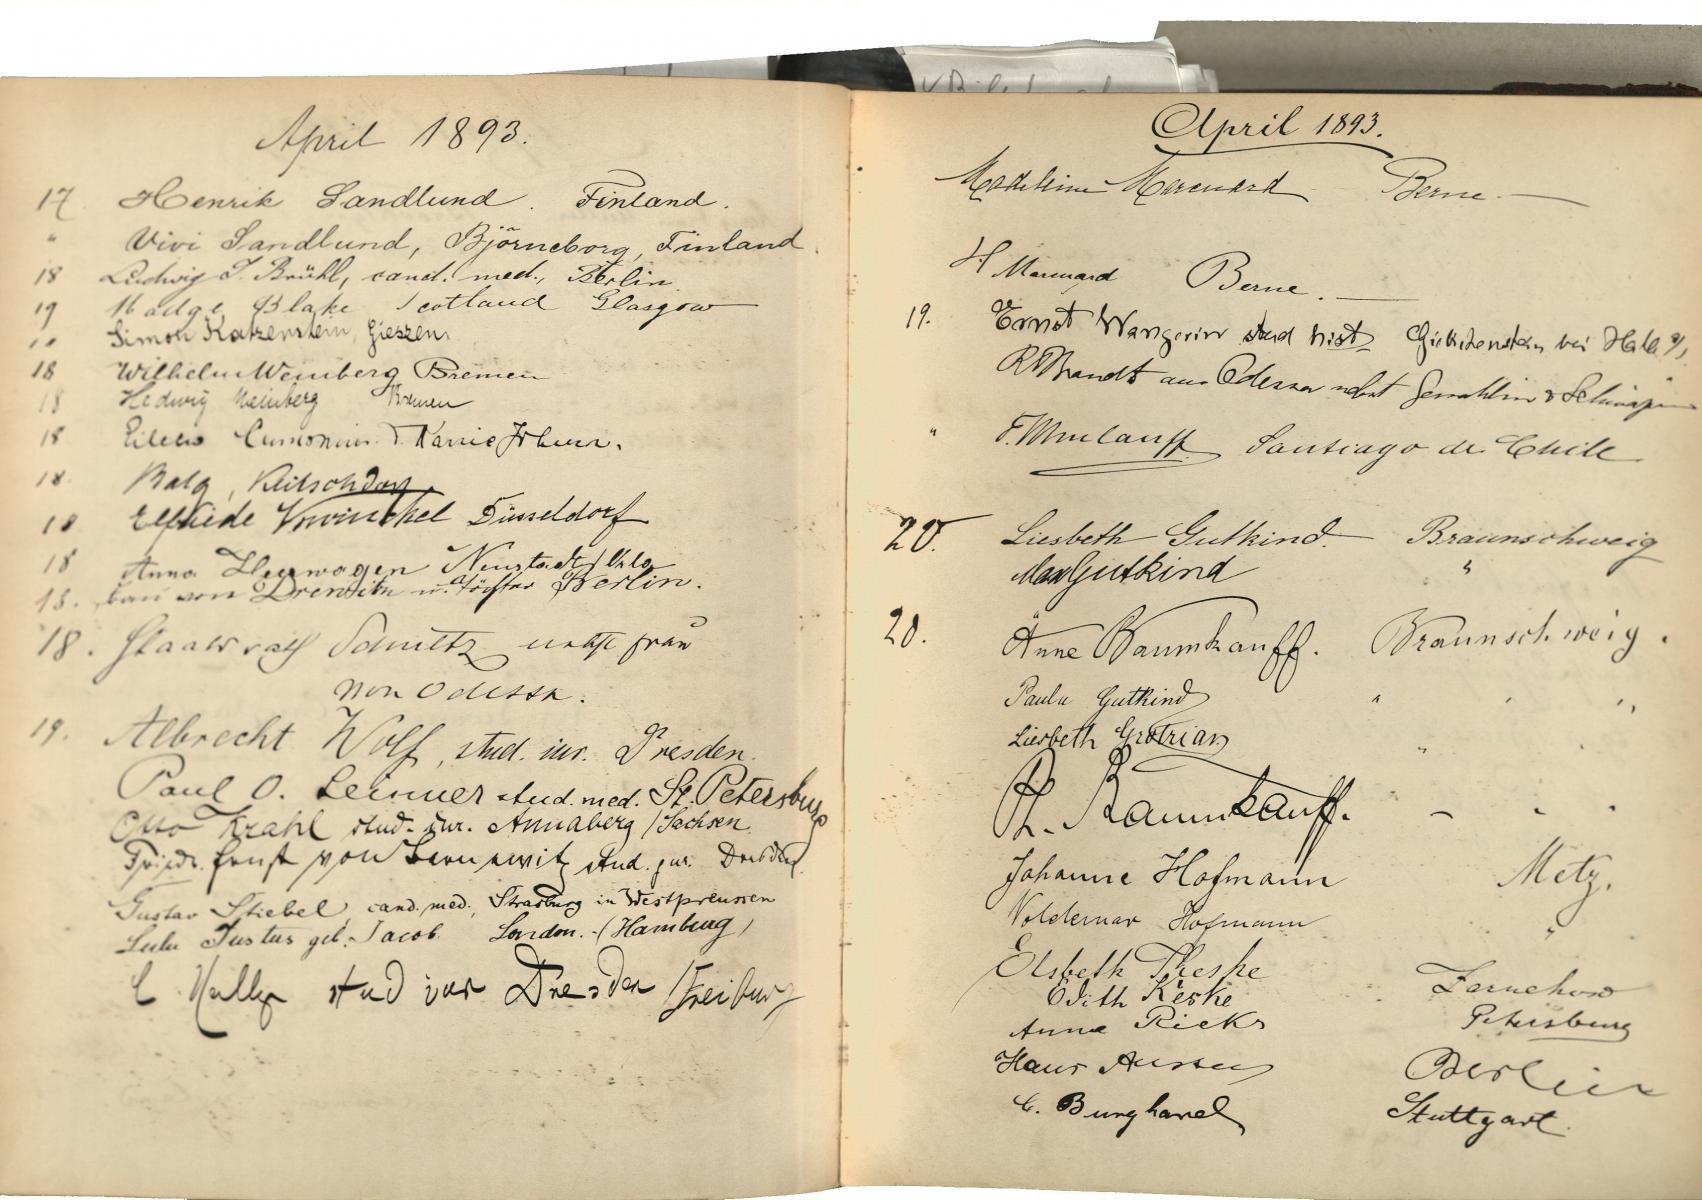 April 1893.
17. Henrik Sandlund. Finland.
" Vivi Sandlund, Björneborg, Finland.
18 Ludwig J. Brühl, cand. med., Berlin.
19 Madge Blake Scotland Glasgow
Simon Katzenstein, Gieszen
18 Wilhelm Weinberg Bremen
18 Hedwig Weinberg Bremen
18
18. Balg,
18 Elfriede Vowinckel Düsseldorf
18 Anna Heerwagen Neustadt
18. von u. Tochter Berlin.
18. Staatsrath Schultz nebst frau
von Odessa.
19. Albrecht Wolf, stud. iur. Dresden.
Paul O. stud. med. St. Petersburg
Otto Krahl stud. iur. Annaberg /Sachsen.
Friedr. Ernst von stud. jur. Dresden.
Gustav Stiebel, cand. med., Strasburg in Westpreussen
Lulu Justus geb. Jacob. London. (Hamburg)
stud iur Dresden /Freiburg
April 1893.
Madeleine Marcuard Berne.
H Marcuard Berne.
19. Ernst Wangerin stud hist. bei Halle a/S
R Brandt aus Odessa nebst Gemahlin & Schwägerin
" Santiago de Chile
20. Liesbeth Gutkind. Braunschweig
Max Gutkind "
20. Änne Baumkauff. Braunschweig.
Paula Gutkind " " "
Liesbeth Grotrian "
Ph. Baumkauff. " " "
Johanne Hofmann Metz.
Woldemar Hofmann "
Elsbeth Theske
Edith Keske
Anna Rieks Petersburg
Hans Berlin
C. Burghard Stuttgart.